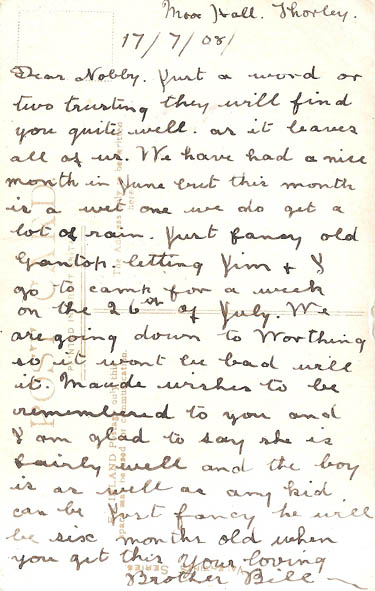 Moor Hall. Thorley.
17/7/08/
Dear Nobby. Just a word or
two trusting they will find
you quite well. as it leaves
all of us. We have had a nice
month in June but this month
is a wet one we do get a
lot of rain. Just fancy old
Gantop. letting Jim & I
go to camp for a week
on the 26th of July. We
are going down to Worthing
so it wont be bad will
it. Maude wishes to be
remembered to you and
I am glad to say she is
fairly well and the boy
is as well as any kid
can be Just fancy he will
be six months old when
you get this your loving
Brother Bill
POST CARD